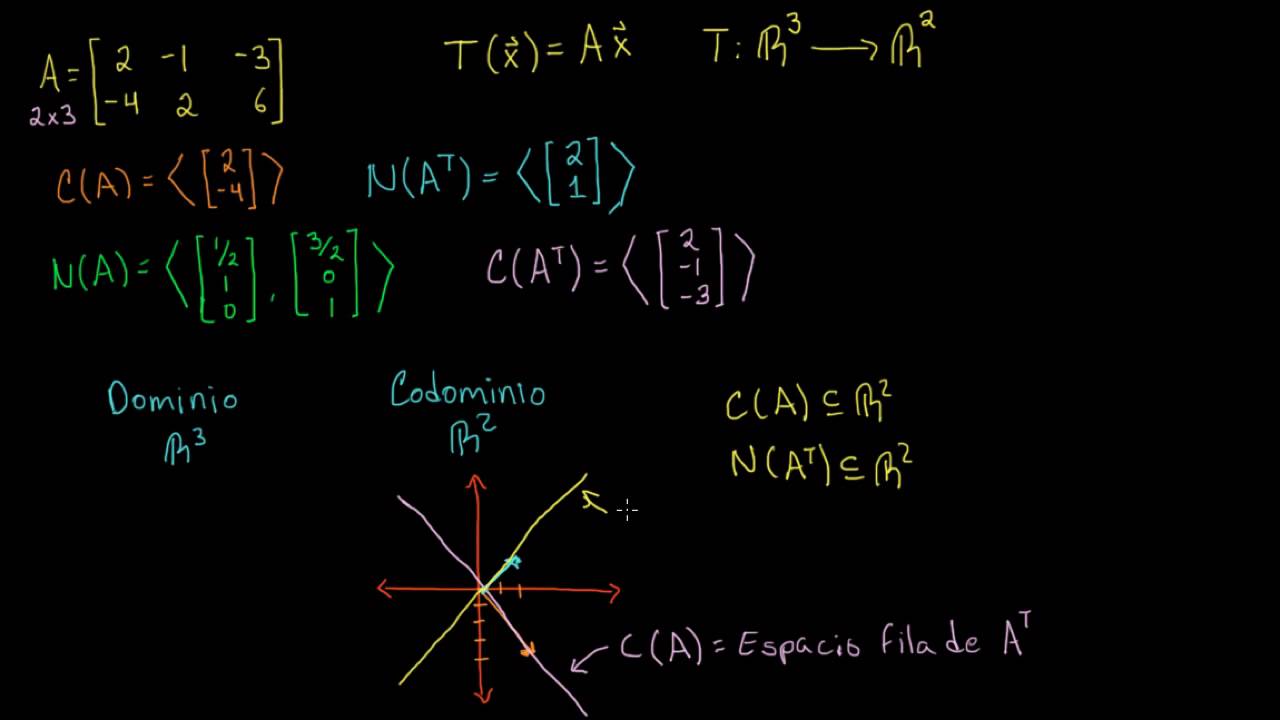 A = [ 2 -1 -3 ; -4 2 6 ] T(x⃗) = A x⃗ T : ℝ³ ⟶ ℝ²
2x3
C(A) = ⟨ [ 2 ; -4 ] ⟩ N(Aᵀ) = ⟨ [ 2 ; 1 ] ⟩
N(A) = ⟨ [ 1/2 ; 1 ; 0 ] , [ 3/2 ; 0 ; 1 ] ⟩ C(Aᵀ) = ⟨ [ 2 ; -1 ; -3 ] ⟩
Dominio
ℝ³
Codominio
ℝ²
C(A) ⊆ ℝ²
N(Aᵀ) ⊆ ℝ²
C(A) = Espacio fila de Aᵀ